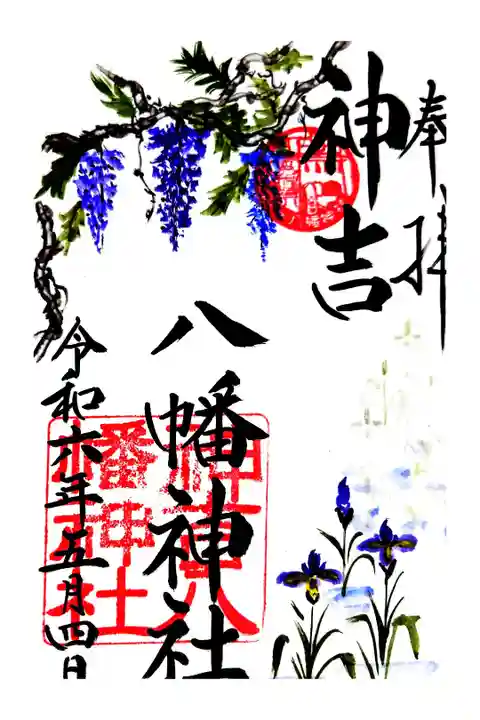 奉拝
神吉
八幡神社
令和六年五月四日